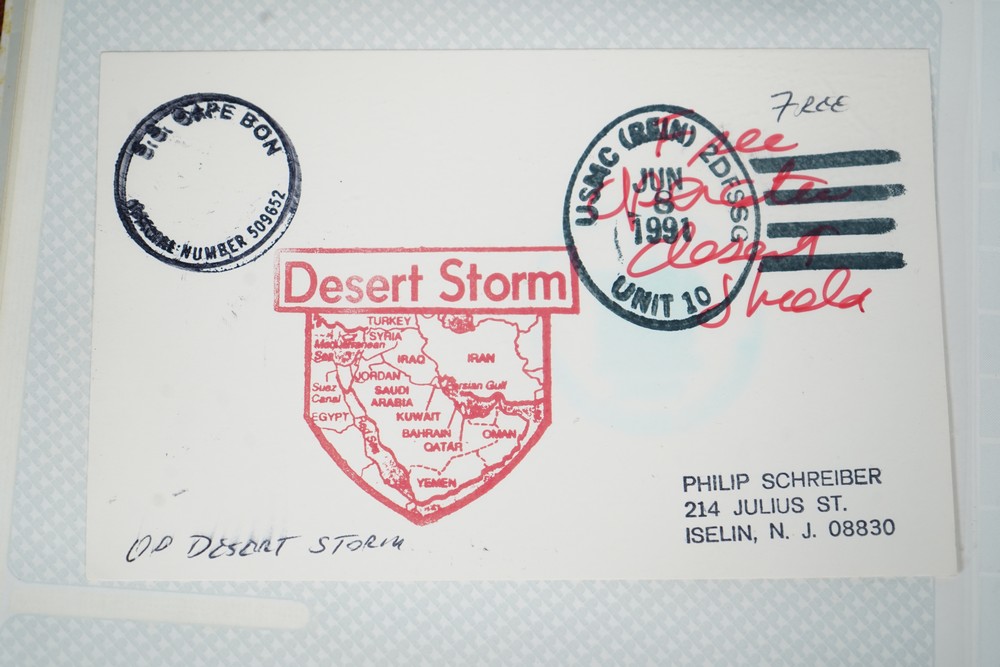 S.S. CAPE BON
NUMBER 509652
FREE
USMC (REIN) 2DFSSG
JUN
8
1991
UNIT 10
Free
Operation
desert
Shield
Desert Storm
TURKEY
Mediterranean
Sea
SYRIA
IRAQ
IRAN
JORDAN
Suez
Canal
SAUDI
ARABIA
Persian Gulf
EGYPT
KUWAIT
BAHRAIN
QATAR
OMAN
YEMEN
PHILIP SCHREIBER
214 JULIUS ST.
ISELIN, N. J. 08830
OP DESERT STORM